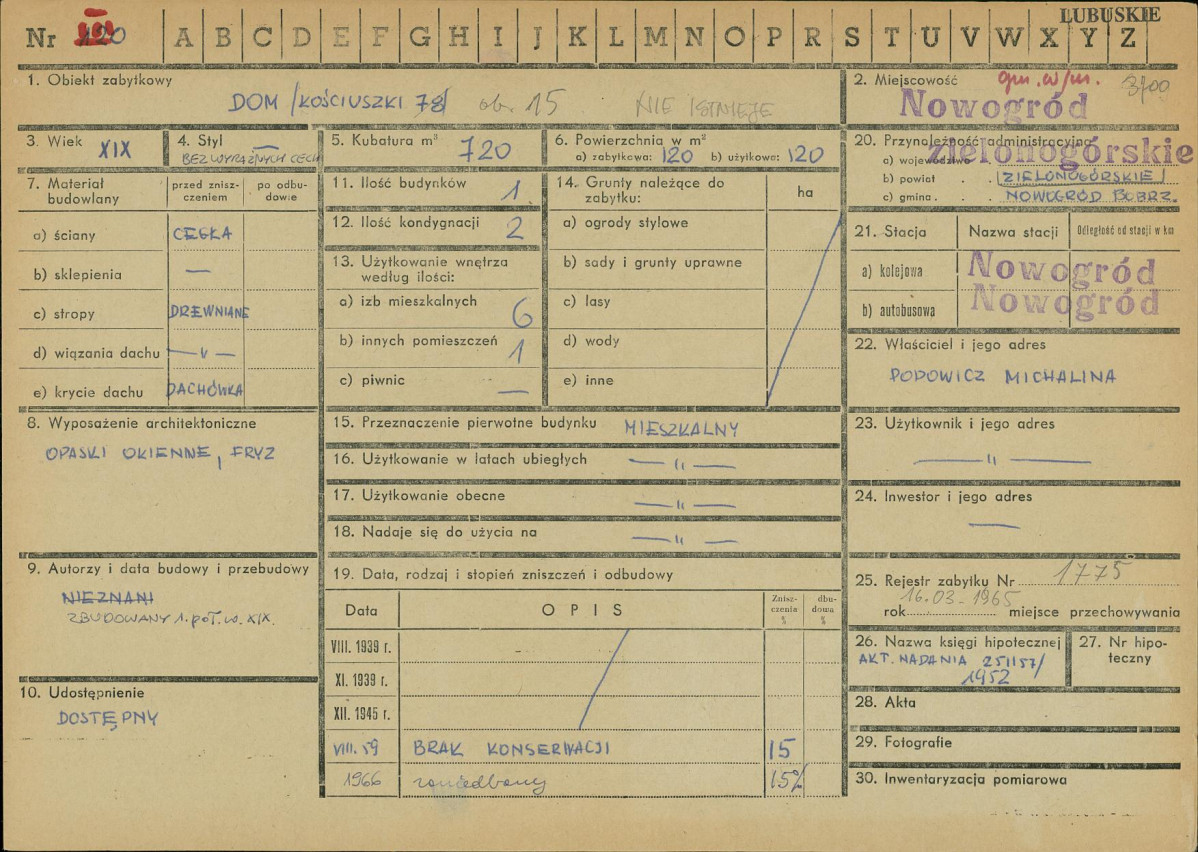 LUBUSKIE
Nr 120 A B C D E F G H I J K L M N O P R S T U V W X Y Z
1. Obiekt zabytkowy
DOM /KOŚCIUSZKI 78/ ob. 15 NIE ISTNIEJE
2. Miejscowość gm. w/m. 3/00
Nowogród
3. Wiek XIX
4. Styl —
BEZ WYRAŹNYCH CECH
5. Kubatura m³ 720
6. Powierzchnia w m²
a) zabytkowa: 120 b) użytkowa: 120
20. Przynależność administracyjna
a) województwo Zielonogórskie
b) powiat . . /ZIELONOGÓRSKIE/
c) gmina . . NOWOGRÓD BOBRZ.
7. Materiał budowlany
przed zniszczeniem
po odbudowie
a) ściany CEGŁA
b) sklepienia —
c) stropy DREWNIANE
d) wiązania dachu — " —
e) krycie dachu DACHÓWKA
8. Wyposażenie architektoniczne
OPASKI OKIENNE, FRYZ
9. Autorzy i data budowy i przebudowy
NIEZNANI
ZBUDOWANY 1. POŁ. W. XIX.
10. Udostępnienie
DOSTĘPNY
11. Ilość budynków 1.
12. Ilość kondygnacji 2
13. Użytkowanie wnętrza
według ilości:
a) izb mieszkalnych 6
b) innych pomieszczeń 1
c) piwnic —
14. Grunty należące do
zabytku:
ha
a) ogrody stylowe
b) sady i grunty uprawne
c) lasy
d) wody
e) inne
15. Przeznaczenie pierwotne budynku MIESZKALNY
16. Użytkowanie w latach ubiegłych — " —
17. Użytkowanie obecne — " —
18. Nadaje się do użycia na — " —
19. Data, rodzaj i stopień zniszczeń i odbudowy
Data OPIS Zniszczenia % dbudowa %
VIII. 1939 r.
XI. 1939 r.
XII. 1945 r.
VIII. 59 BRAK KONSERWACJI 15
1966 zaniedbany 15%
21. Stacja Nazwa stacji Odległość od stacji w km
a) kolejowa Nowogród
b) autobusowa Nowogród
22. Właściciel i jego adres
PODOWICZ MICHALINA
23. Użytkownik i jego adres
— " —
24. Inwestor i jego adres
—
25. Rejestr zabytku Nr 1775
rok 16.03-1965 miejsce przechowywania
26. Nazwa księgi hipotecznej
AKT. NADANIA 251157/
1952
27. Nr hipoteczny
28. Akta
29. Fotografie
30. Inwentaryzacja pomiarowa